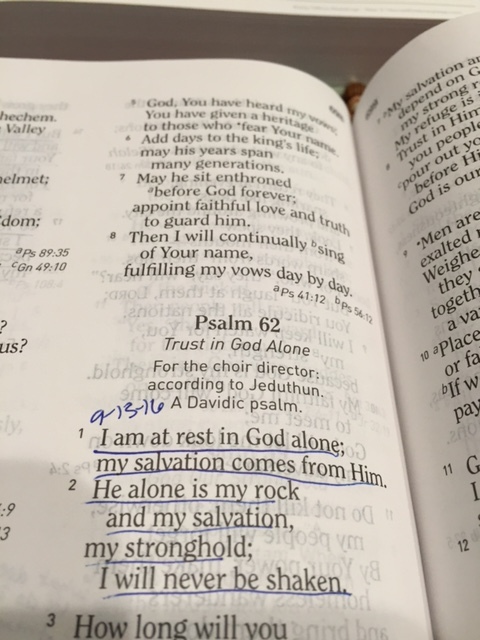 hechem.
Valley
elmet;
dom;
ᵃPs 89:35
ᶜGn 49:10
?
us?
:9
3
5 God, You have heard my vows;
You have given a heritage
to those who *fear Your name.
6 Add days to the king's life;
may his years span
many generations.
7 May he sit enthroned
ᵃbefore God forever;
appoint faithful love and truth
to guard him.
8 Then I will continually ᵇsing
of Your name,
fulfilling my vows day by day.
ᵃPs 41:12 ᵇPs 56:12
Psalm 62
Trust in God Alone
For the choir director:
according to Jeduthun.
9-13-16 A Davidic psalm.
1 I am at rest in God alone;
my salvation comes from Him.
2 He alone is my rock
and my salvation,
my stronghold;
I will never be shaken.
3 How long will you
7 My salvation a
depend on G
my strong r
My refuge is
8 Trust in Him
you people
ᶜpour out yo
before Hi
God is our
9 *Men are
exalted
Weighe
they
togeth
a va
10 ᵃPlace
or fa
ᵇIf w
pay
11 G
I
12